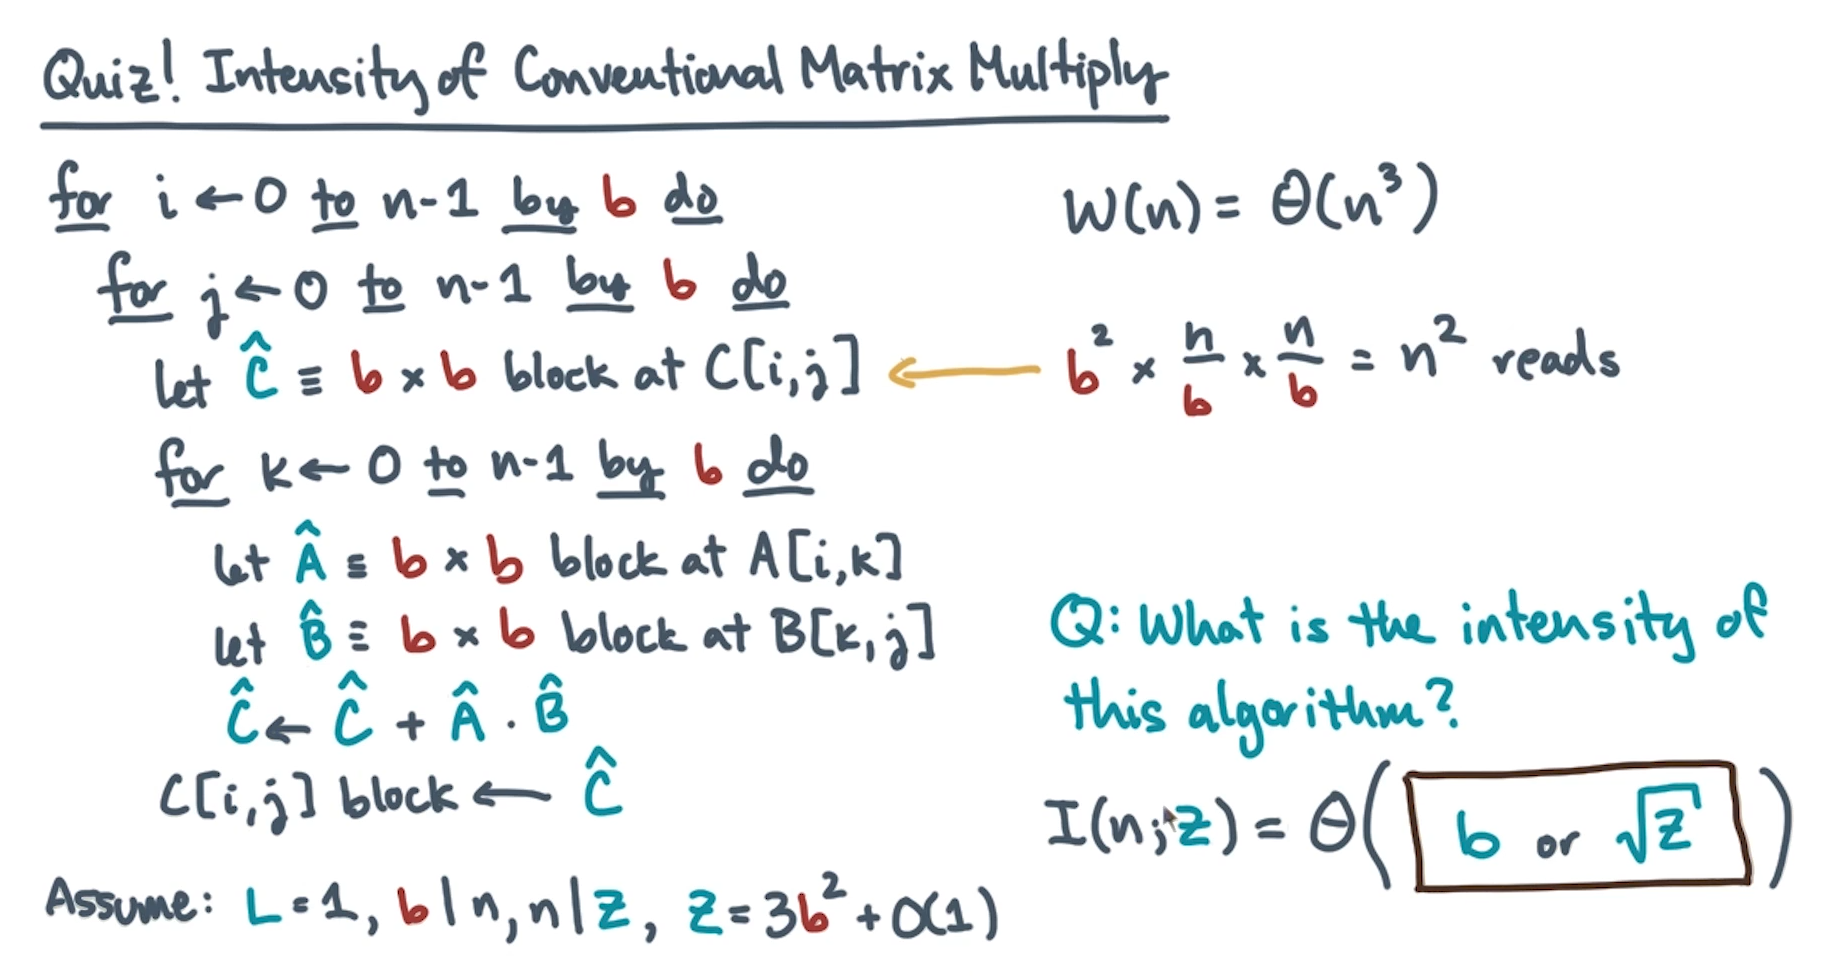 Quiz! Intensity of Conventional Matrix Multiply
for i ← 0 to n-1 by b do
for j ← 0 to n-1 by b do
let Ĉ ≡ b × b block at C[i,j]
for k ← 0 to n-1 by b do
let Â ≡ b × b block at A[i,k]
let B̂ ≡ b × b block at B[k,j]
Ĉ ← Ĉ + Â · B̂
C[i,j] block ← Ĉ
Assume: L=1, b|n, n|Z, Z=3b²+O(1)
W(n) = Θ(n³)
← b² × n/b × n/b = n² reads
Q: What is the intensity of
this algorithm?
I(n;Z) = Θ( b or √Z )